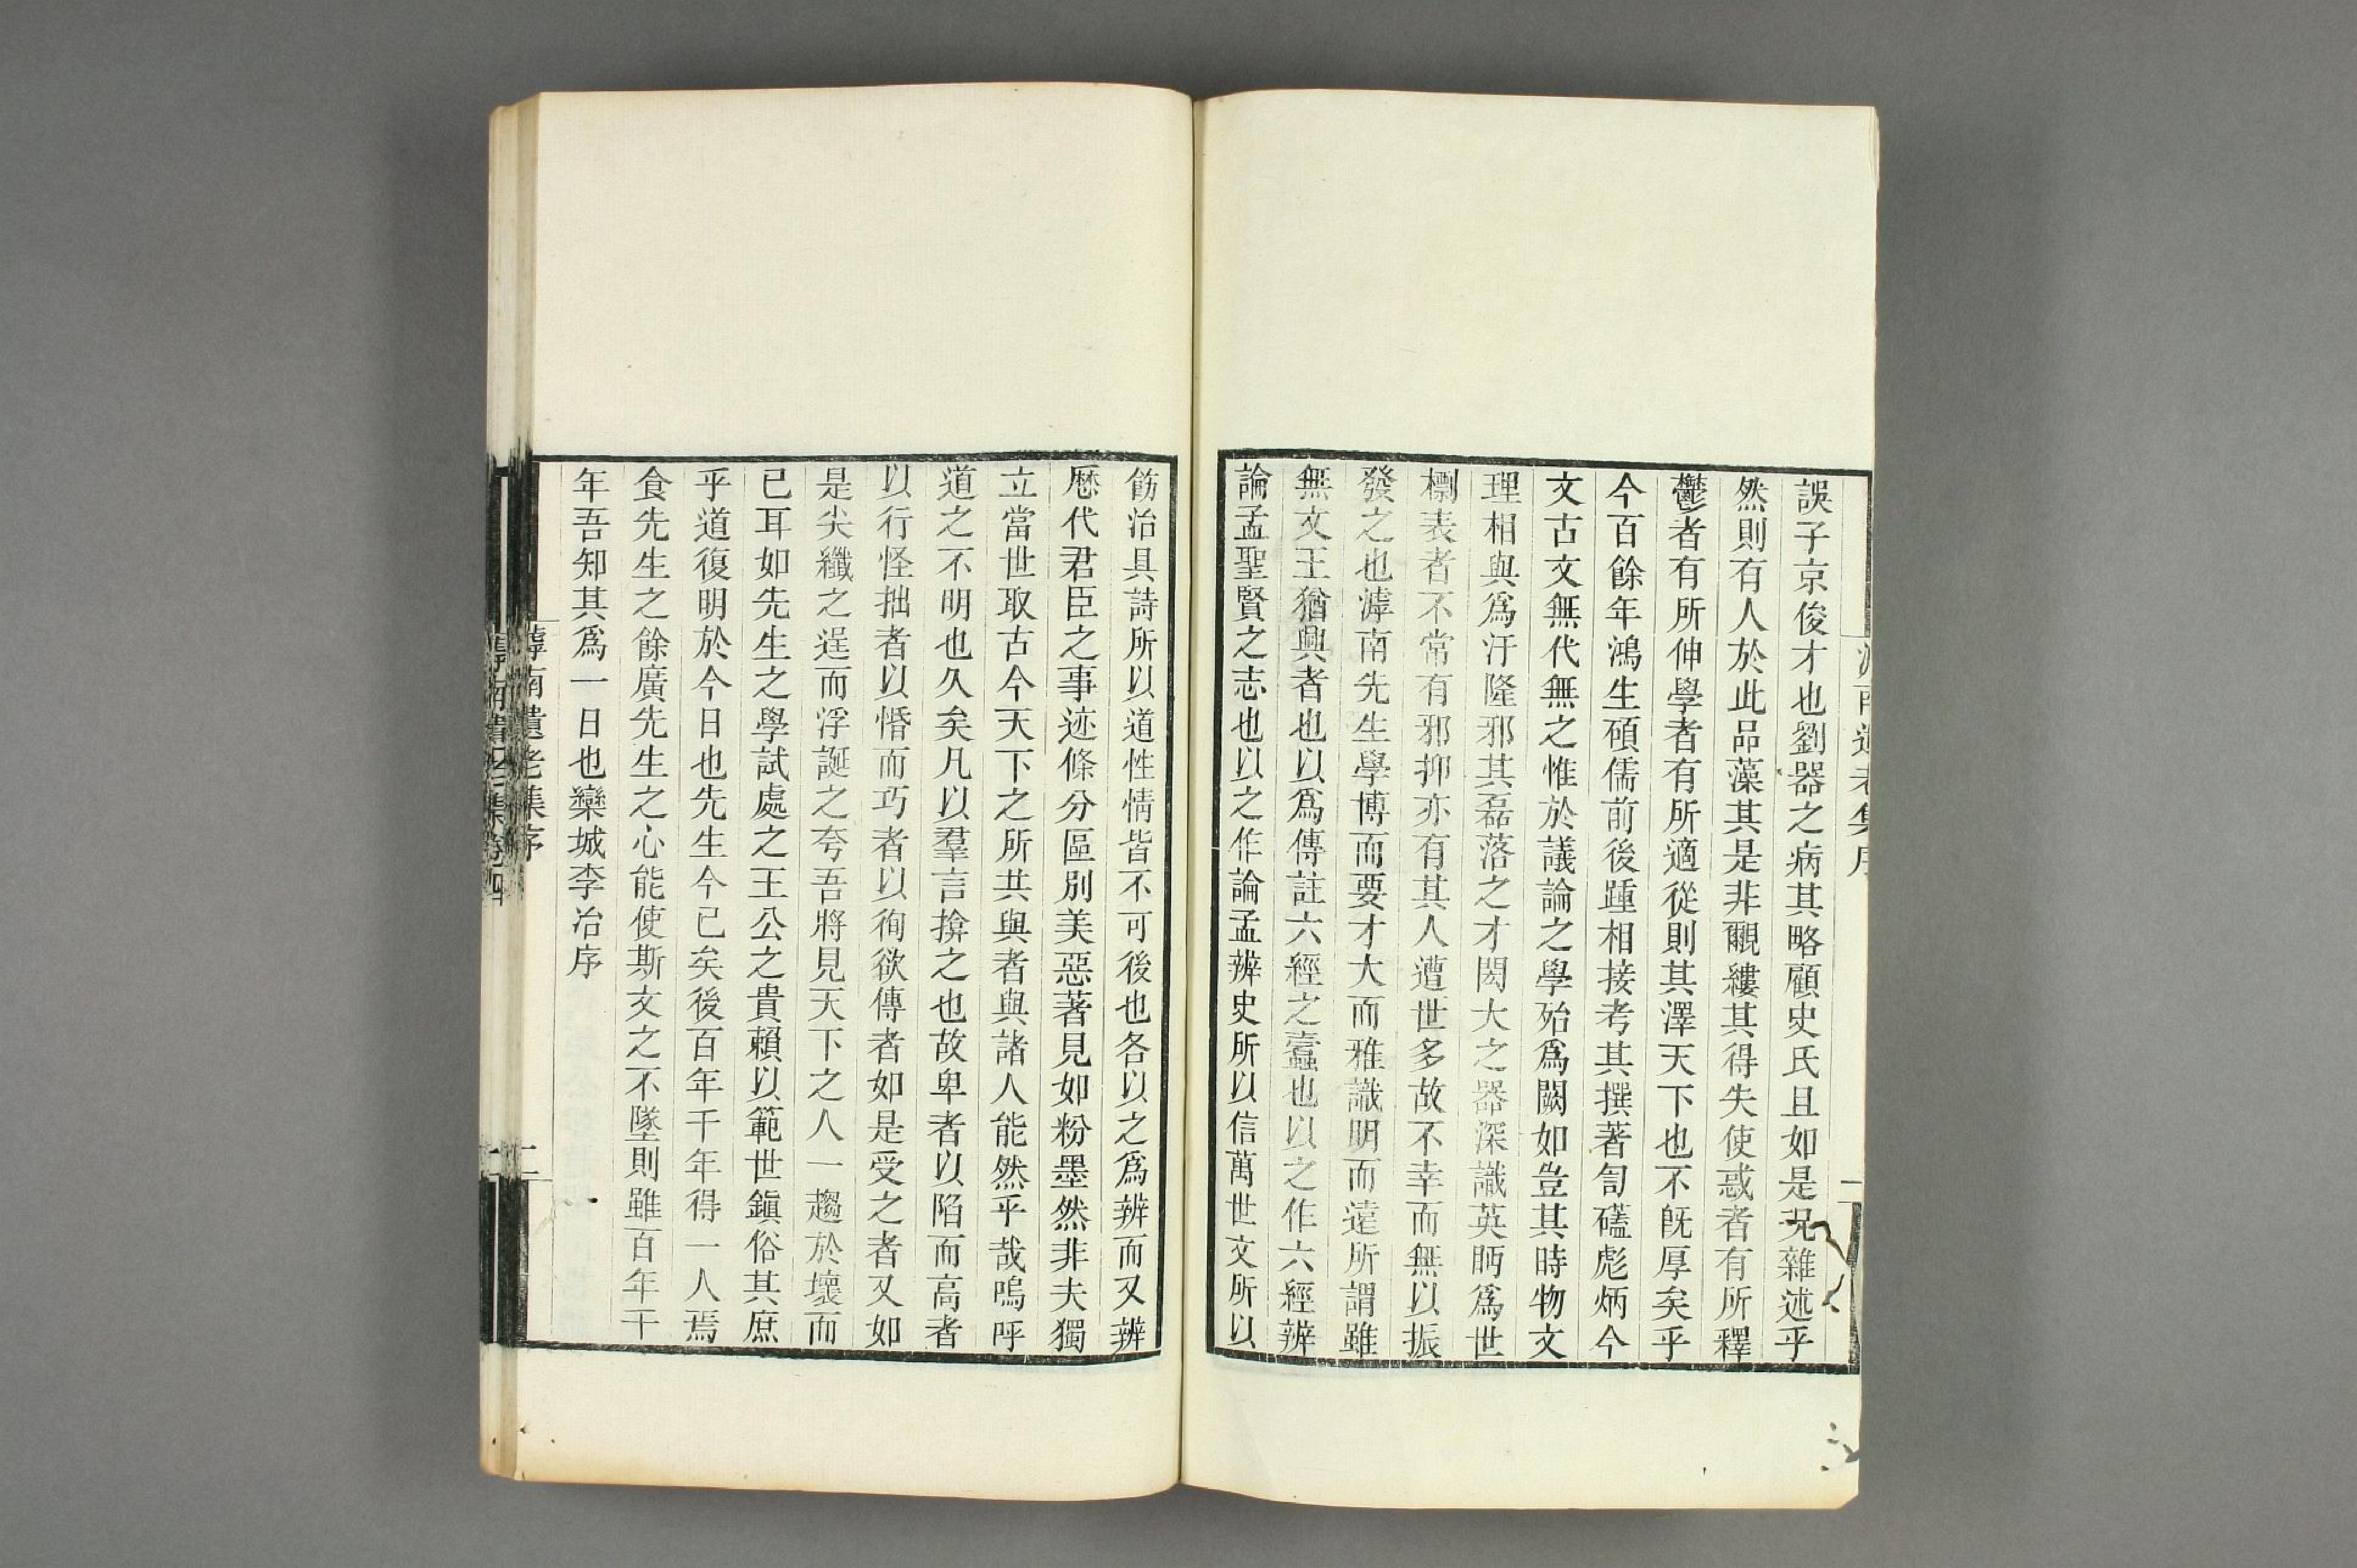 誤子京俊才也劉器之病其略顧史氏且如是況雜述乎
然則有人於此品藻其是非覼縷其得失使惑者有所釋
鬱者有所伸學者有所適從則其澤天下也不旣厚矣乎
今百餘年鴻生碩儒前後踵相接考其撰著訇礚彪炳今
文古文無代無之惟於議論之學殆爲闕如豈其時物文
理相與爲汙隆邪其磊落之才閎大之器深識英眄爲世
標表者不常有邪抑亦有其人遭世多故不幸而無以振
發之也滹南先生學博而要才大而雅識明而遠所謂雖
無文王猶興者也以爲傳註六經之蠹也以之作六經辨
論孟聖賢之志也以之作論孟辨史所以信萬世文所以
飭治具詩所以道性情皆不可後也各以之爲辨而又辨
歷代君臣之事迹條分區別美惡著見如粉墨然非夫獨
立當世取古今天下之所共與者與諸人能然乎哉嗚呼
道之不明也久矣凡以羣言揜之也故卑者以陷而高者
以行怪拙者以惛而巧者以徇欲傳者如是受之者又如
是尖纖之逞而浮誕之夸吾將見天下之人一趨於壞而
已耳如先生之學試處之王公之貴賴以範世鎭俗其庶
乎道復明於今日也先生今已矣後百年千年得一人焉
食先生之餘廣先生之心能使斯文之不墜則雖百年千
年吾知其爲一日也欒城李冶序
滹南遺老集序
二